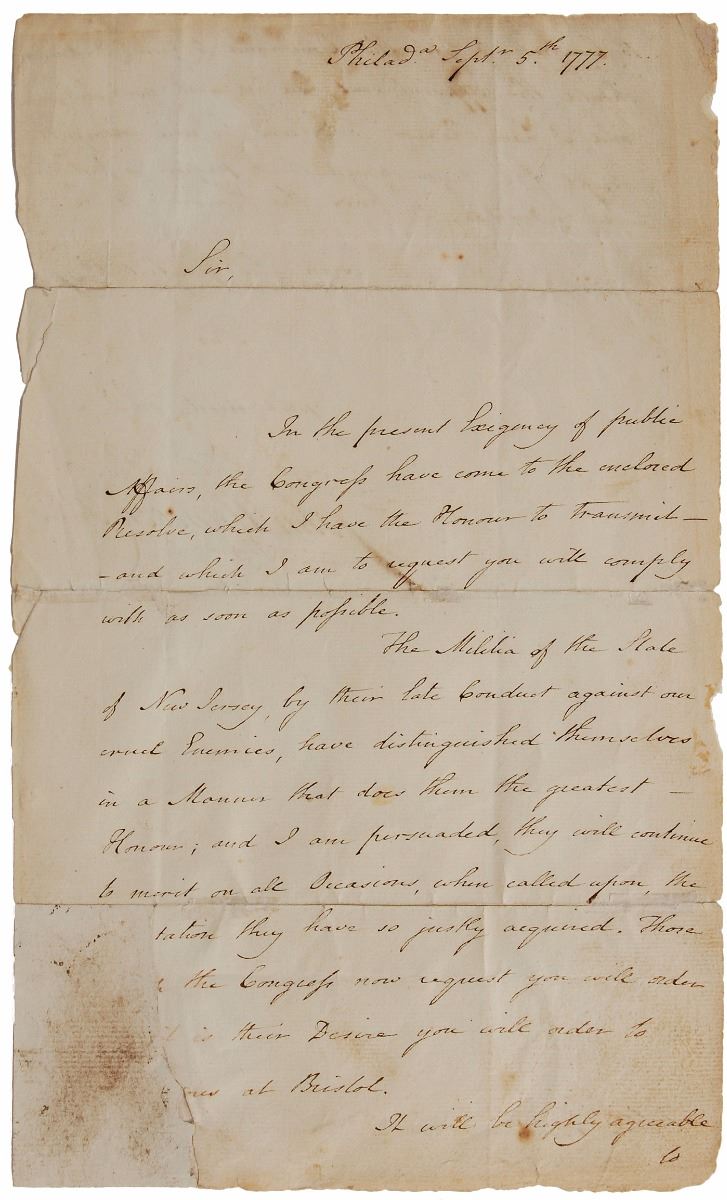 Philad.a Sept.r 5.th 1777.
Sir,
In the present Exigency of public
Affairs, the Congress have come to the enclosed
Resolve, which I have the Honour to transmit—
-and which I am to request you will comply
with as soon as possible.
The Militia of the State
of New Jersey, by their late Conduct against our
cruel Enemies, have distinguished themselves
in a Manner that does them the greatest —
Honour; and I am persuaded, they will continue
to merit on all Occasions, when called upon, the
tation they have so justly acquired. Those
the Congress now request you will order
is their Desire you will order to
at Bristol.
It will be highly agreeable
to